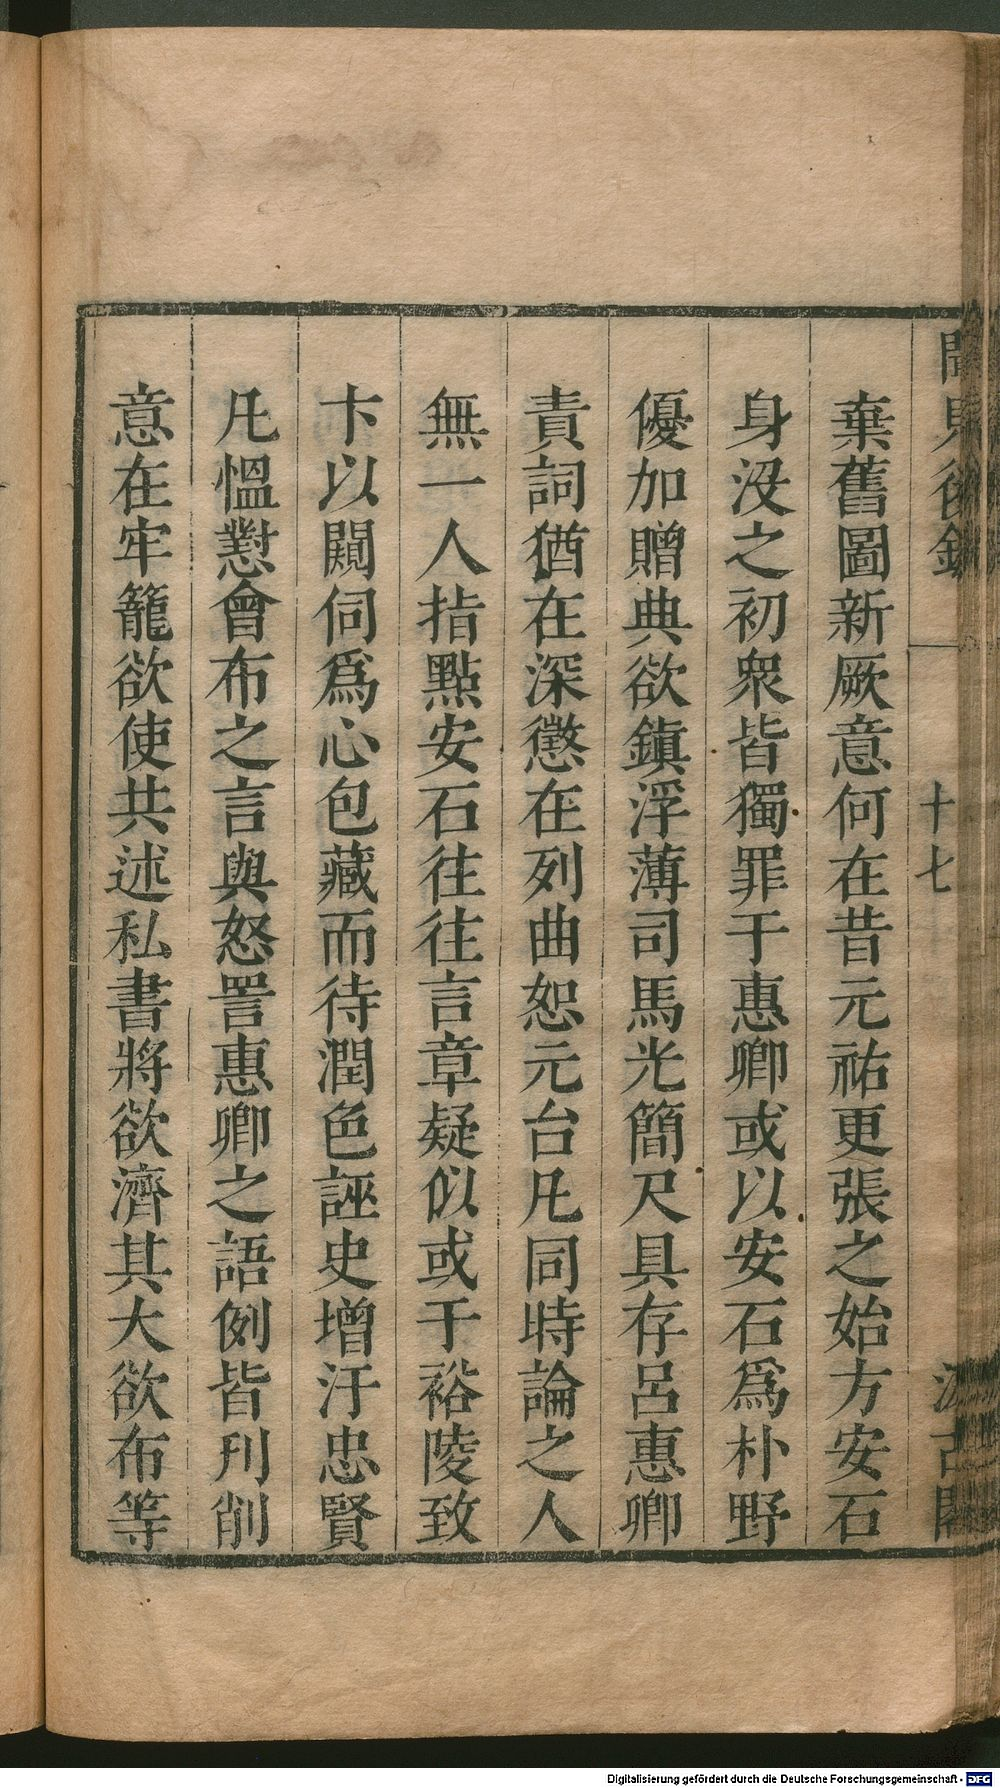 聞見後錄
十七
汲古閣
棄舊圖新厥意何在昔元祐更張之始方安石
身沒之初衆皆獨罪于惠卿或以安石爲朴野
優加贈典欲鎮浮薄司馬光簡尺具存呂惠卿
責詞猶在深懲在列曲恕元台凡同時論之人
無一人指點安石往往言章疑似或于裕陵致
卞以闚伺爲心包藏而待潤色誣史增汙忠賢
凡慍懟會布之言與怒詈惠卿之語例皆刋削
意在牢籠欲使共述私書將欲濟其大欲布等
Digitalisierung gefördert durch die Deutsche Forschungsgemeinschaft - DFG